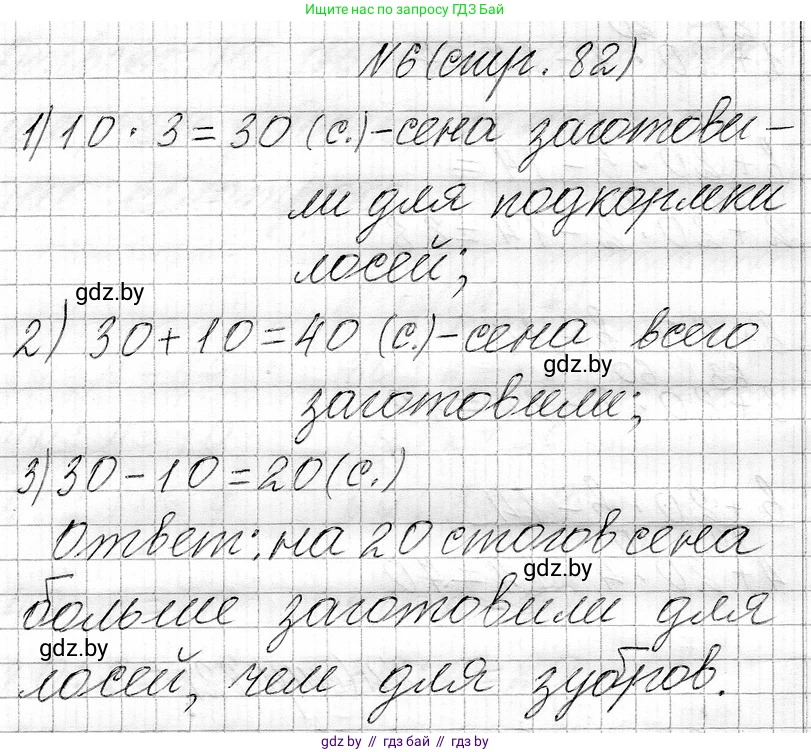 Ищите нас по запросу ГДЗ Бай
N6 (стр. 82)
1) 10 · 3 = 30 (с.) - сена заготови-
ли для подкормки
лосей;
gdz.by
2) 30 + 10 = 40 (с.) - сена всего
gdz.by
заготовили;
3) 30 - 10 = 20 (с.)
Ответ: на 20 стогов сена
gdz.by
больше заготовили для
gdz.by
лосей, чем для зубров.
gdz.by // гдз бай // gdz by